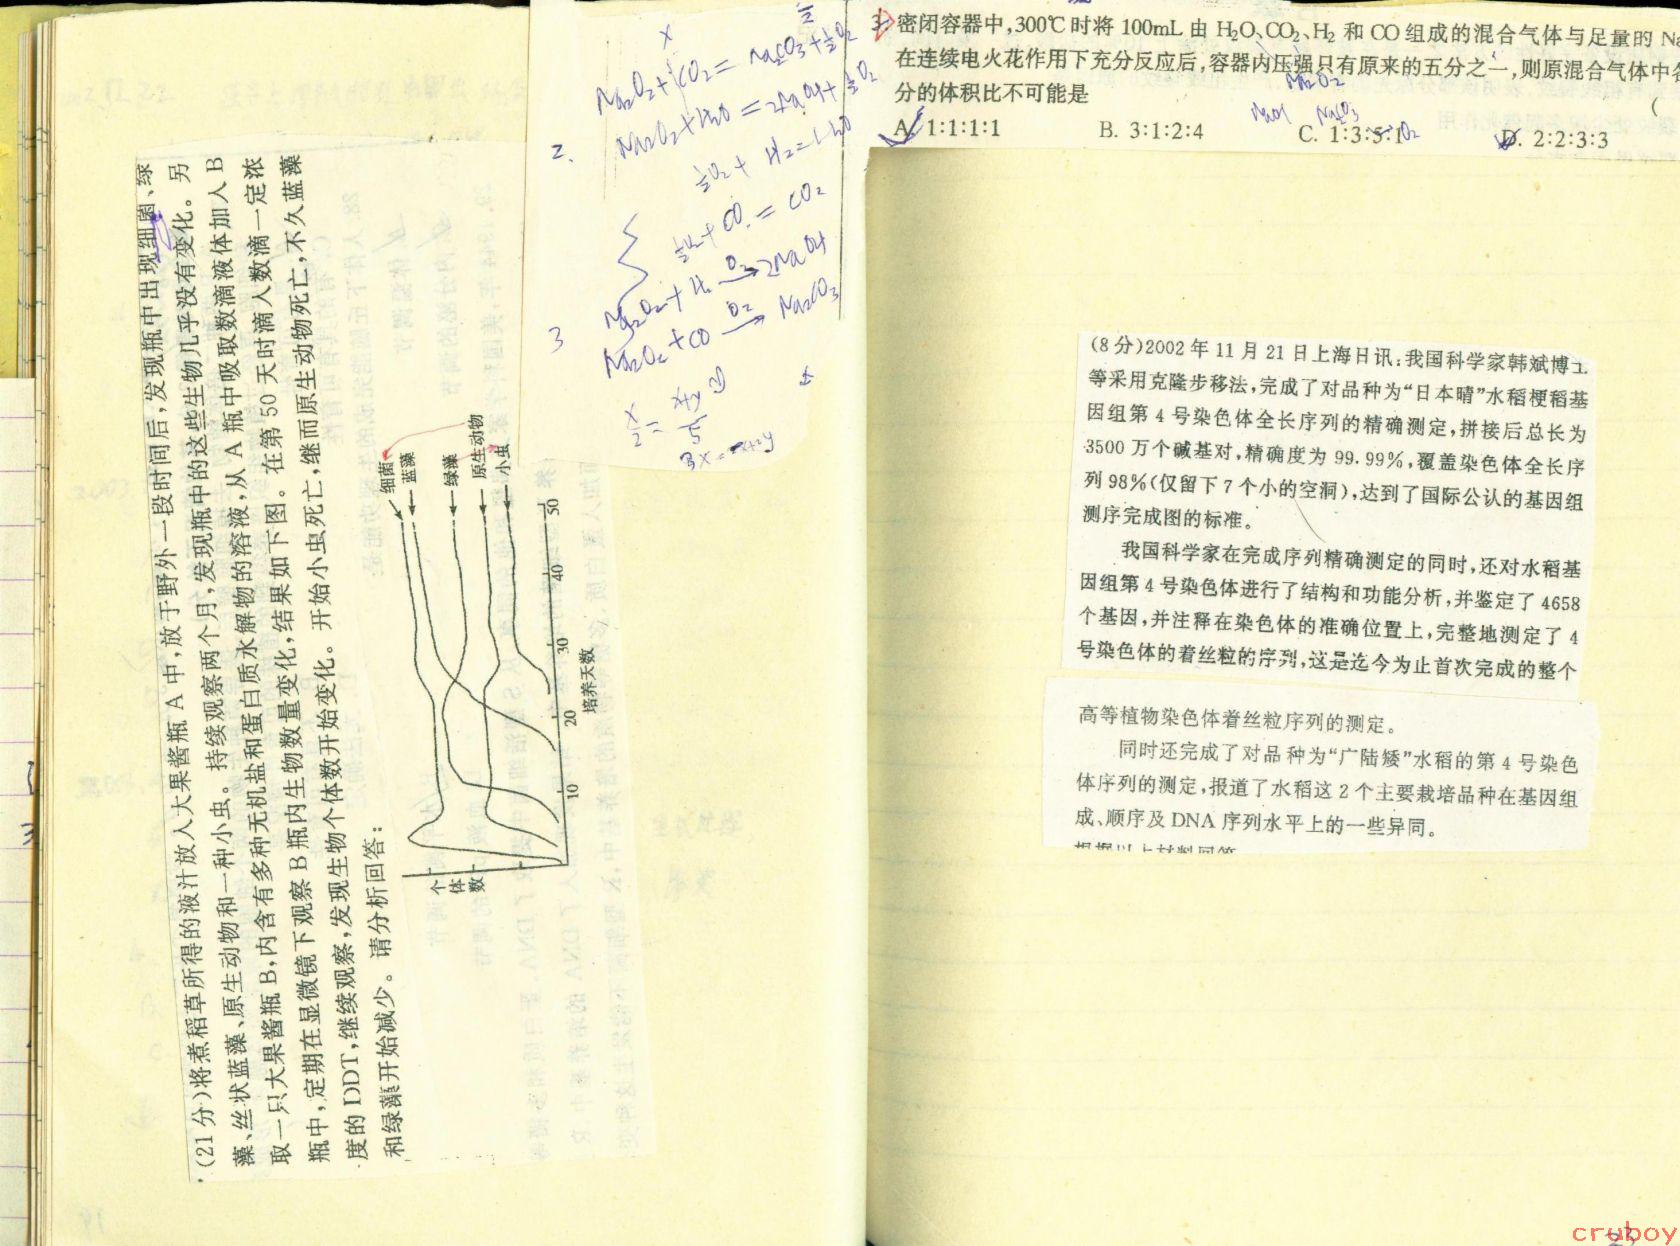 .(21分)将煮稻草所得的液汁放入大果酱瓶 A 中,放于野外一段时间后,发现瓶中出现细菌、绿
藻、丝状蓝藻、原生动物和一种小虫。持续观察两个月,发现瓶中的这些生物几乎没有变化。另
取一只大果酱瓶 B,内含有多种无机盐和蛋白质水解物的溶液,从 A 瓶中吸取数滴液体加入 B
瓶中,定期在显微镜下观察 B 瓶内生物数量变化,结果如下图。在第 50 天时滴入数滴一定浓
度的 DDT,继续观察,发现生物个体数开始变化。开始小虫死亡,继而原生动物死亡,不久蓝藻
和绿藻开始减少。请分析回答:
细菌
蓝藻
绿藻
原生动物
小虫
个体数
10
20
30
40
50
培养天数
Na₂O₂+CO₂=Na₂CO₃+½O₂
2.
Na₂O₂+H₂O=2NaOH+½O₂
½O₂+H₂=H₂O
½O₂+CO=CO₂
3
Na₂O₂+H₂ O₂→ 2NaOH
Na₂O₂+CO O₂→ Na₂CO₃
3. 密闭容器中,300℃时将 100mL 由 H₂O、CO₂、H₂ 和 CO 组成的混合气体与足量的 Na
在连续电火花作用下充分反应后,容器内压强只有原来的五分之一,则原混合气体中各
分的体积比不可能是 (
A. 1:1:1:1 B. 3:1:2:4 C. 1:3:5:1 D. 2:2:3:3
Na₂O₂
NaOH Na₂CO₃
O₂
(8分)2002 年 11 月 21 日上海日讯:我国科学家韩斌博士
等采用克隆步移法,完成了对品种为“日本晴”水稻粳稻基
因组第 4 号染色体全长序列的精确测定,拼接后总长为
3500 万个碱基对,精确度为 99.99%,覆盖染色体全长序
列 98%(仅留下 7 个小的空洞),达到了国际公认的基因组
测序完成图的标准。
我国科学家在完成序列精确测定的同时,还对水稻基
因组第 4 号染色体进行了结构和功能分析,并鉴定了 4658
个基因,并注释在染色体的准确位置上,完整地测定了 4
号染色体的着丝粒的序列,这是迄今为止首次完成的整个
高等植物染色体着丝粒序列的测定。
同时还完成了对品种为“广陆矮”水稻的第 4 号染色
体序列的测定,报道了水稻这 2 个主要栽培品种在基因组
成、顺序及 DNA 序列水平上的一些异同。
根据以上材料回答
cruboy